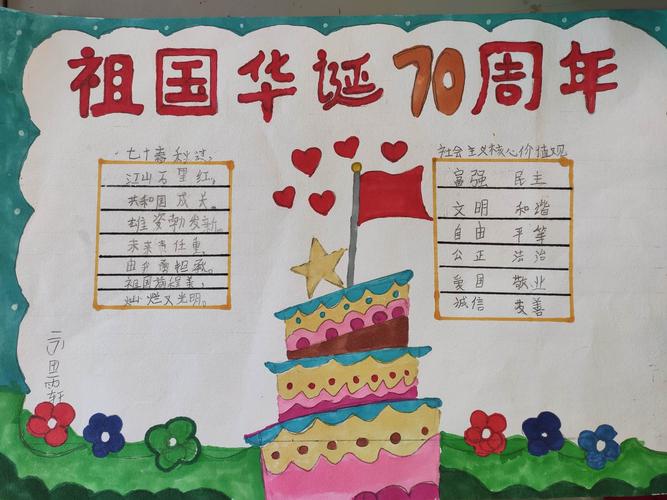 祖国华诞70周年
七十春秋
江山万里红，
共和国成长。
雄姿勃发新。
未来责任重，
由我勇担承。
祖国前程美，
灿烂又光明。
社会主义核心价值观
富强 民主
文明 和谐
自由 平等
公正 法治
爱国 敬业
诚信 友善
田雨轩